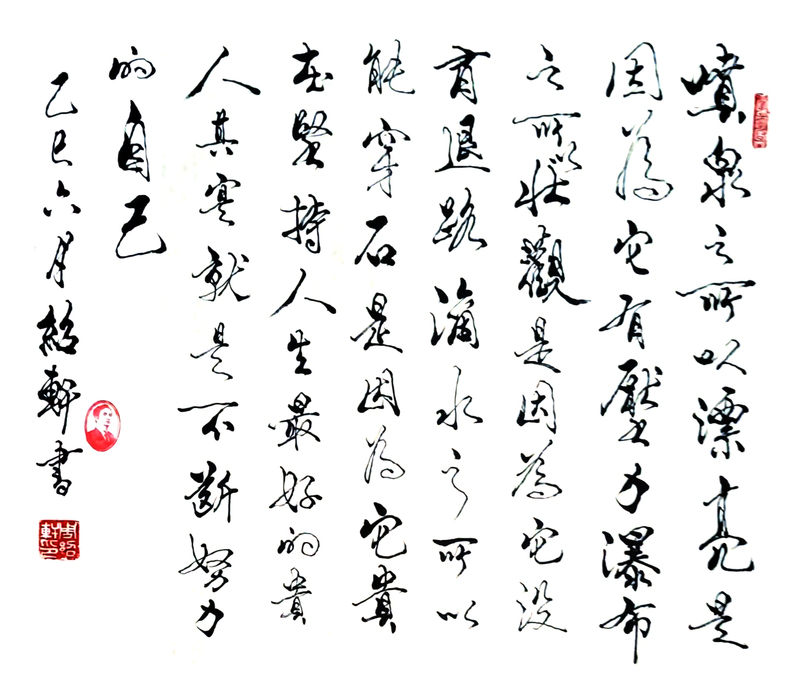 噴泉之所以漂亮是
因為它有壓力瀑布
之所以壯觀是因為它没
有退路滴水之所以
能穿石是因为它貴
在堅持人生最好的貴
人其实就是不斷努力
的自己
乙巳六月紹軒書